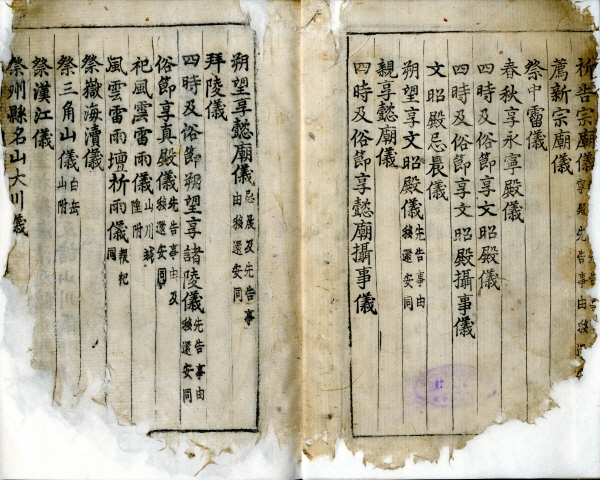 祈告宗廟儀
薦新宗廟儀
祭中霤儀
春秋享永寧殿儀
四時及俗節享文昭殿儀
四時及俗節享文昭殿攝事儀
文昭殿忌晨儀
朔望享文昭殿儀先告事由移還安同
親享懿廟儀
四時及俗節享懿廟攝事儀
朔望享懿廟儀忌晨及先告事由移還安同
拜陵儀
四時及俗節朔望享諸陵儀先告事由移還安同
俗節享真殿儀先告事由及移還安同
祀風雲雷雨儀山川城隍附
風雲雷雨壇祈雨儀報祀同
祭嶽海瀆儀
祭三角山儀白岳山附
祭漢江儀
祭州縣名山大川儀